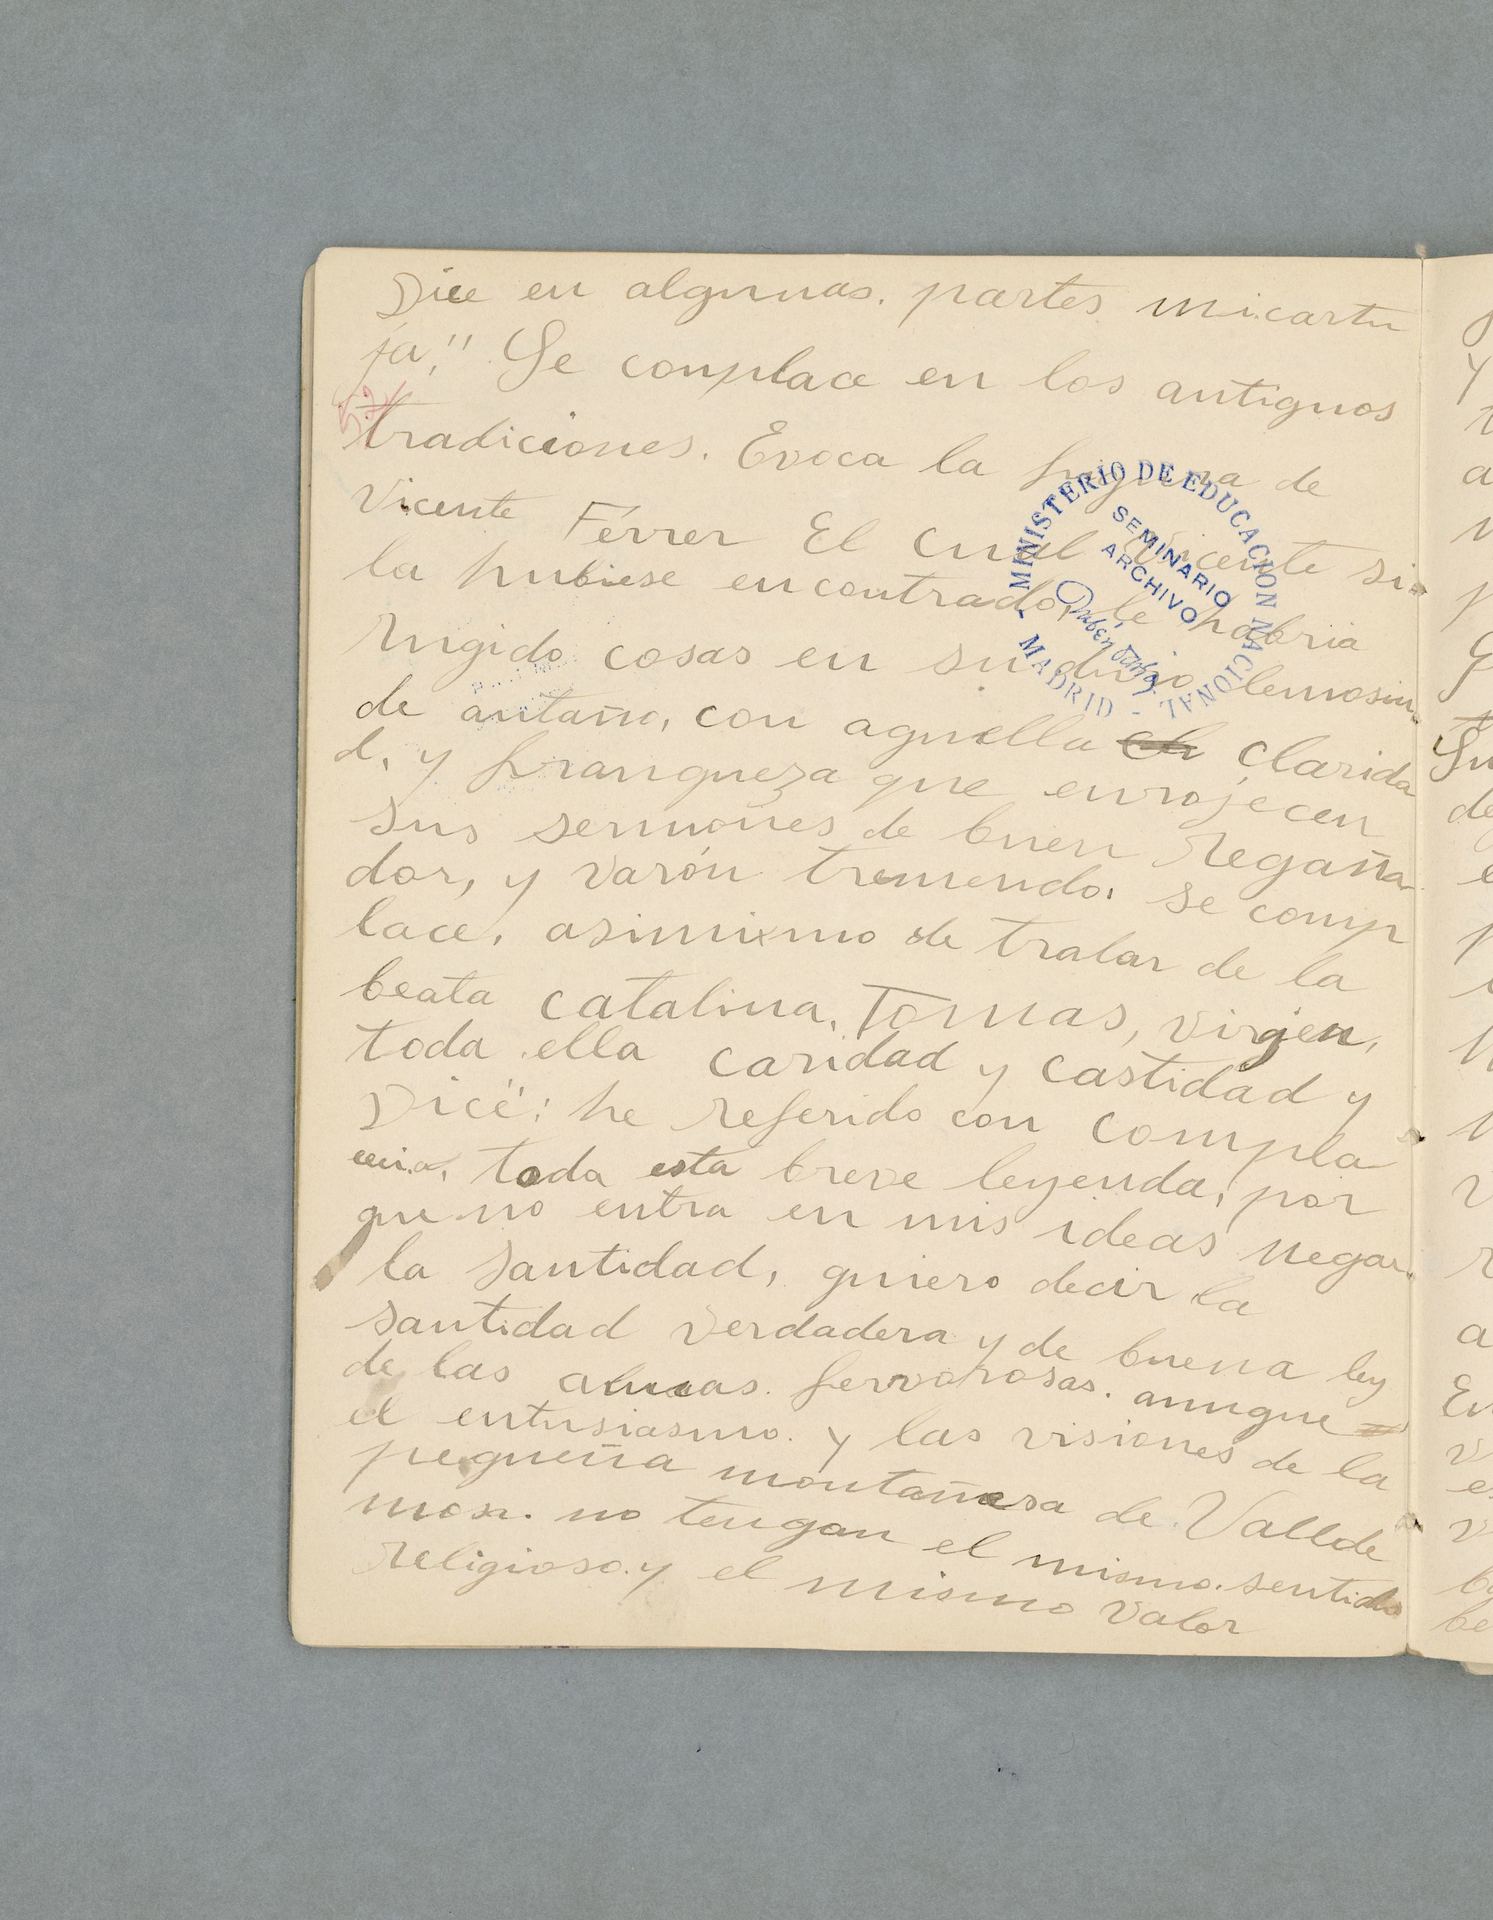 Dice en algunas. partes micartu
ja," Se conplace en los antiguos
tradiciones. Evoca la figura de
Vicente Férrer El Cual Vicente si
la hubiese encontrado, le habria
rugido cosas en su duro lemosin
de antaño, con aquella clarida
d, y franqueza que enrojecen
sus sermones de buen regaña
dor, y varón tremendo, se comp
lace, asimismo de tratar de la
beata Catalina, Tomas, virgen,
toda ella caridad y castidad y
Dice": he referido con compla
encia, toda esta breve leyenda, por
que no entra en mis ideas negar
la santidad, quiero decir la
santidad verdadera y de buena ley
de las almas. fervorosas. aunque
el entusiasmo. y las visiones de la
pequeña montañesa de Vallde
mosa. no tengan el mismo. sentido
religioso. y el mismo valor
MINISTERIO DE EDUCACION NACIONAL - MADRID -
SEMINARIO
ARCHIVO
Rubén Darío
52